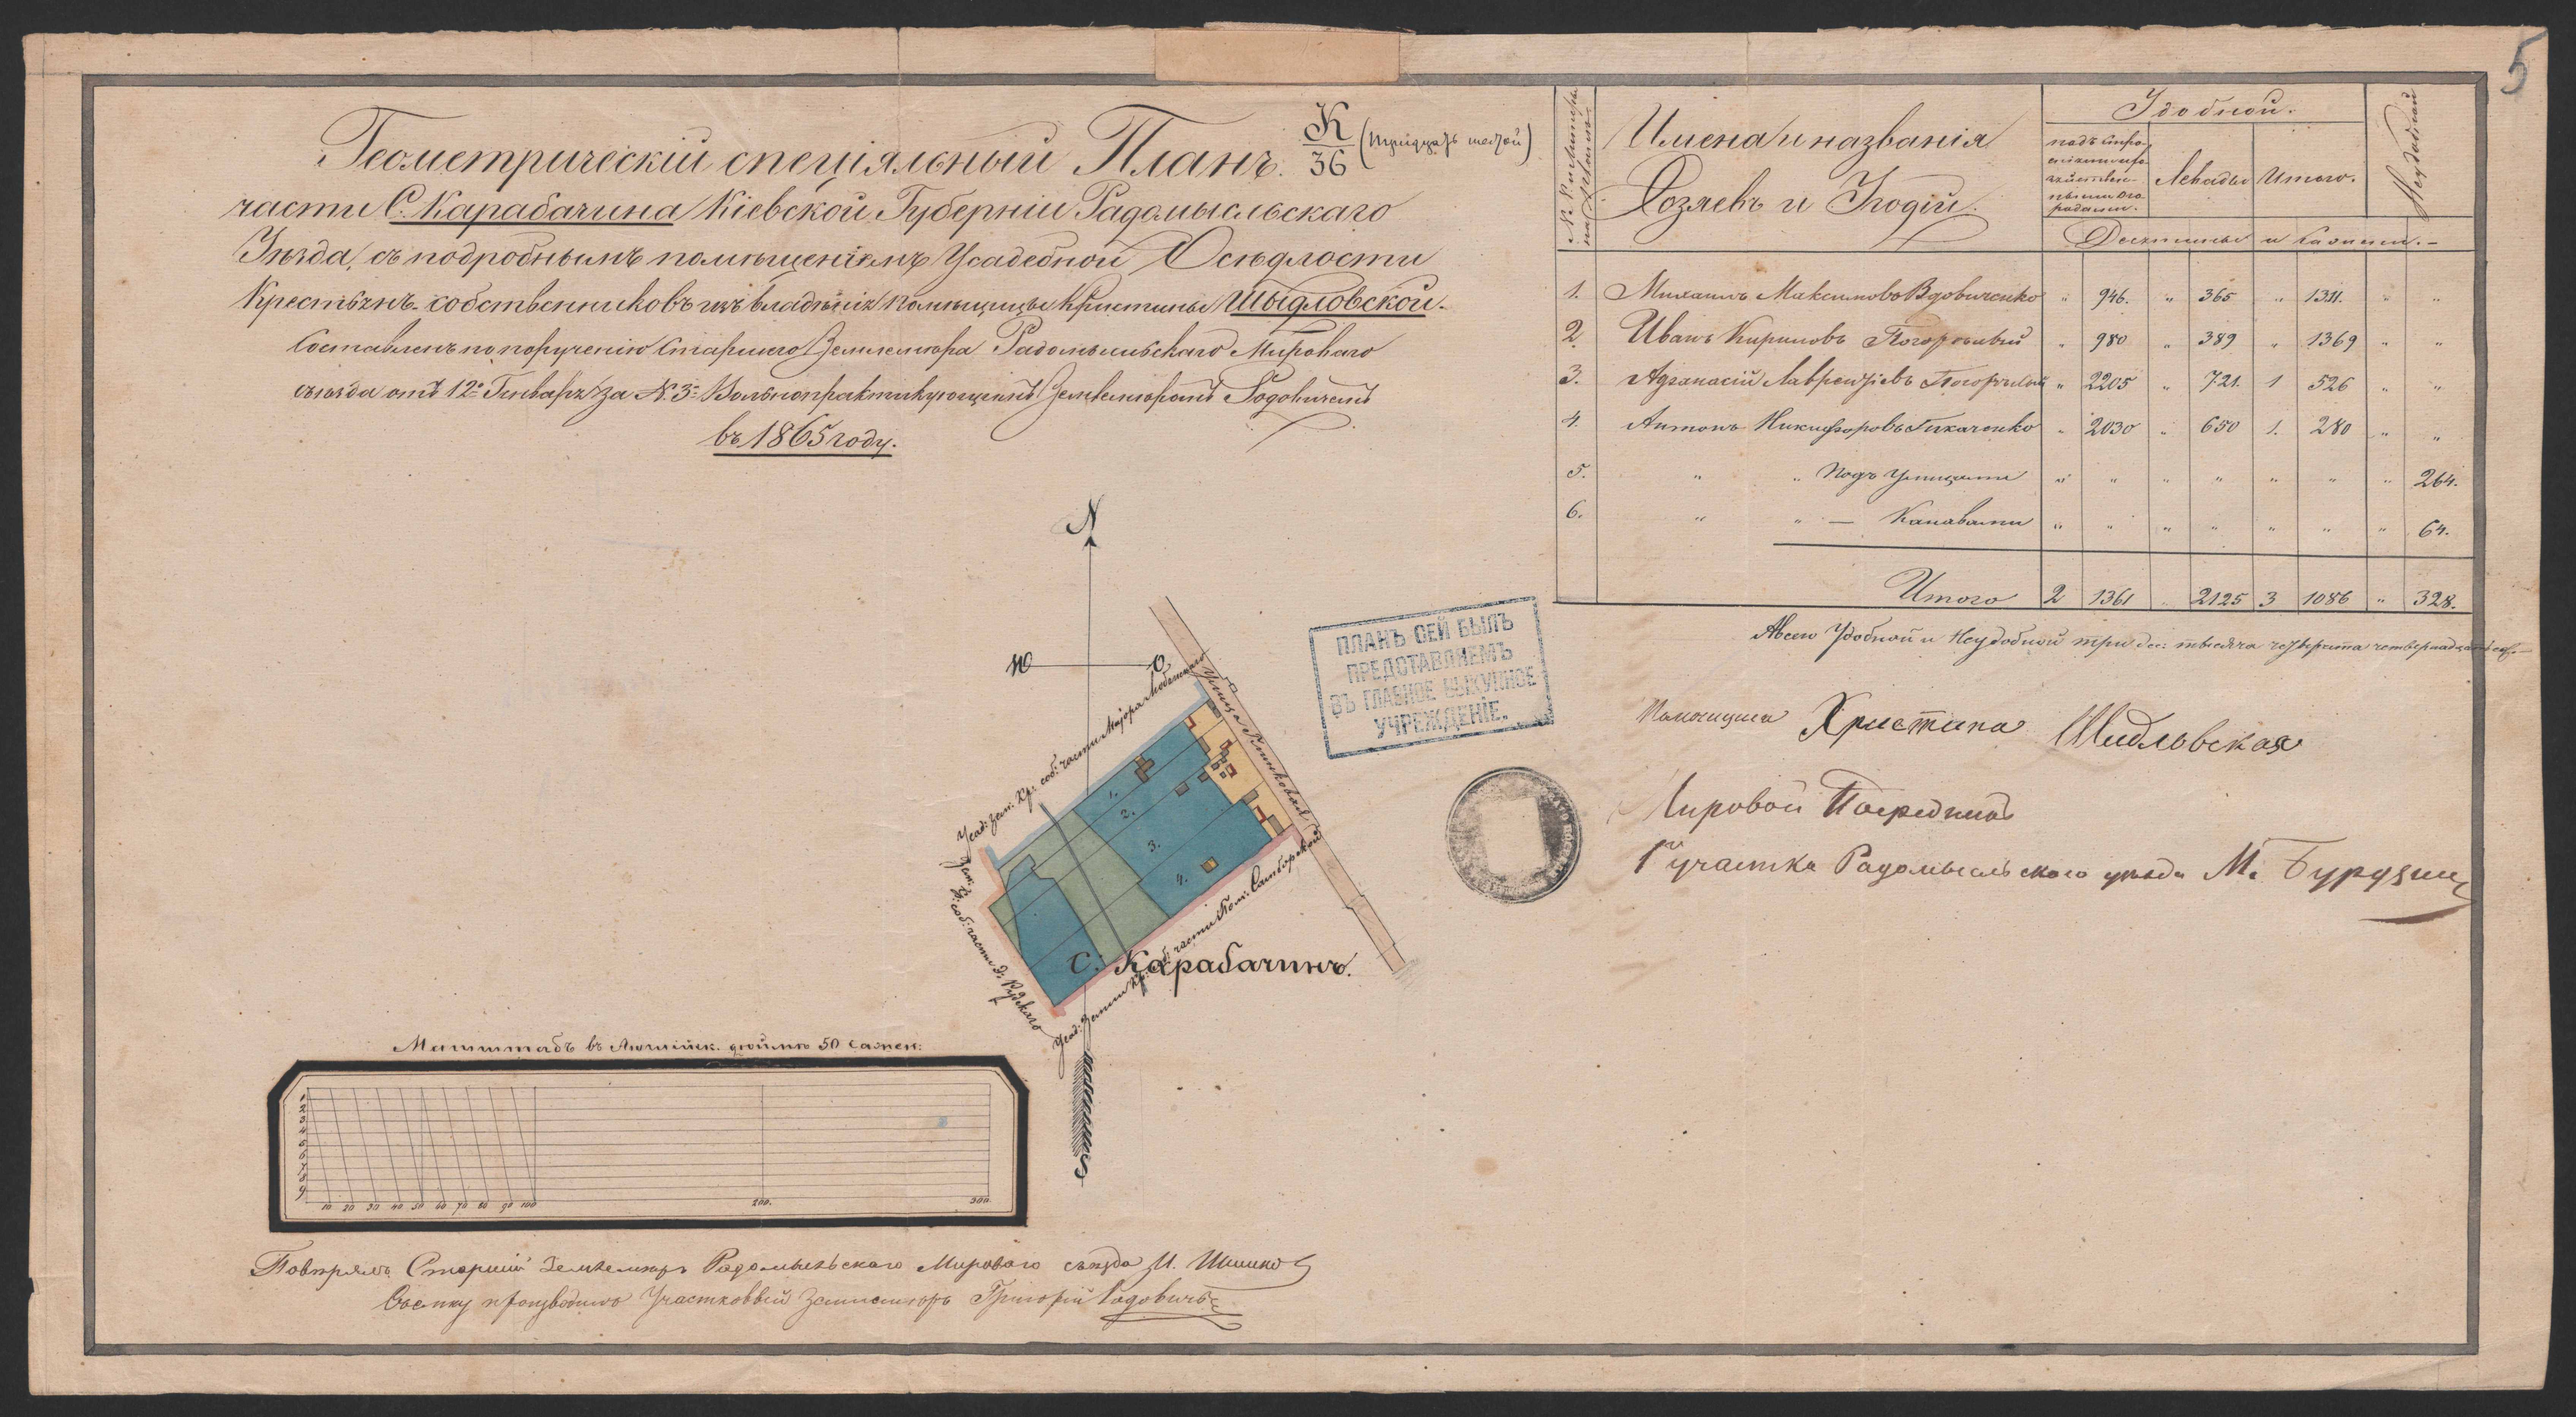 5
Геометрическій спеціяльный Планъ. К/36 (тридцать шестой)
части С. Карабачина Кіевской Губерніи Радомысльскаго
Уѣзда, съ подробнымъ помѣщеніемъ Усадебной Осѣдлости
Крестьянъ-собственниковъ изъ владѣнія помѣщицы Кристины Шыдловской.
Составленъ по порученію Старшего Землемѣра Радомысльскаго Мироваго
съѣзда отъ 12го Генваря за №3= Вольнопрактикующимъ Землемѣромъ Годовичемъ
въ 1865 году.
Имена и названія
Хозяевъ и Угодій.
Удобной.
Левады
Итого.
Неудобной
Десятины и Сажени.
1. Михаилъ Максимовъ Вдовиченко " 946. " 365 " 1311. " "
2. Иванъ Кириловъ Погорѣлый " 980 " 389 " 1369 " "
3. Афанасій Лаврентіевъ Погорѣлый " 2205 " 721. 1 526 " "
4. Антонъ Никифоровъ Ткаченко " 2030 " 650 1. 280 " "
5. " " Подъ Улицами " " " " " " " 264.
6. " " — Канавами " " " " " " " 64.
Итого 2 1361 " 2125 3 1086 " 328.
А всего Удобной и Неудобной три дес: тысяча четыреста четырнадцать саж.
N
W
O
S
ПЛАНЪ СЕЙ БЫЛЪ
ПРЕДСТАВЛЯЕМЪ
ВЪ ГЛАВНОЕ ВЫКУПНОЕ
УЧРЕЖДЕНІЕ.
Помѣщица Христина Шидловская
Мировой Посредникъ
1го участка Радомысльского уѣзда М.
Усад: Зем: Кр: соб: части Маіора
Зем: Кр: соб: части
Усад: Земли Кр: соб: части Пом:
Улица
1.
2.
3.
4.
С. Карабачинъ.
Масштабъ въ Англійск. дюймѣ 50 Сажен:
1
2
3
4
5
6
7
8
9
10 20 30 40 50 60 70 80 90 100 200. 300.
Повѣрялъ Старшій Землемѣръ Радомысльскаго Мироваго съѣзда И.
Съемку производилъ Участковый Землемѣръ Григорій Годовичъ